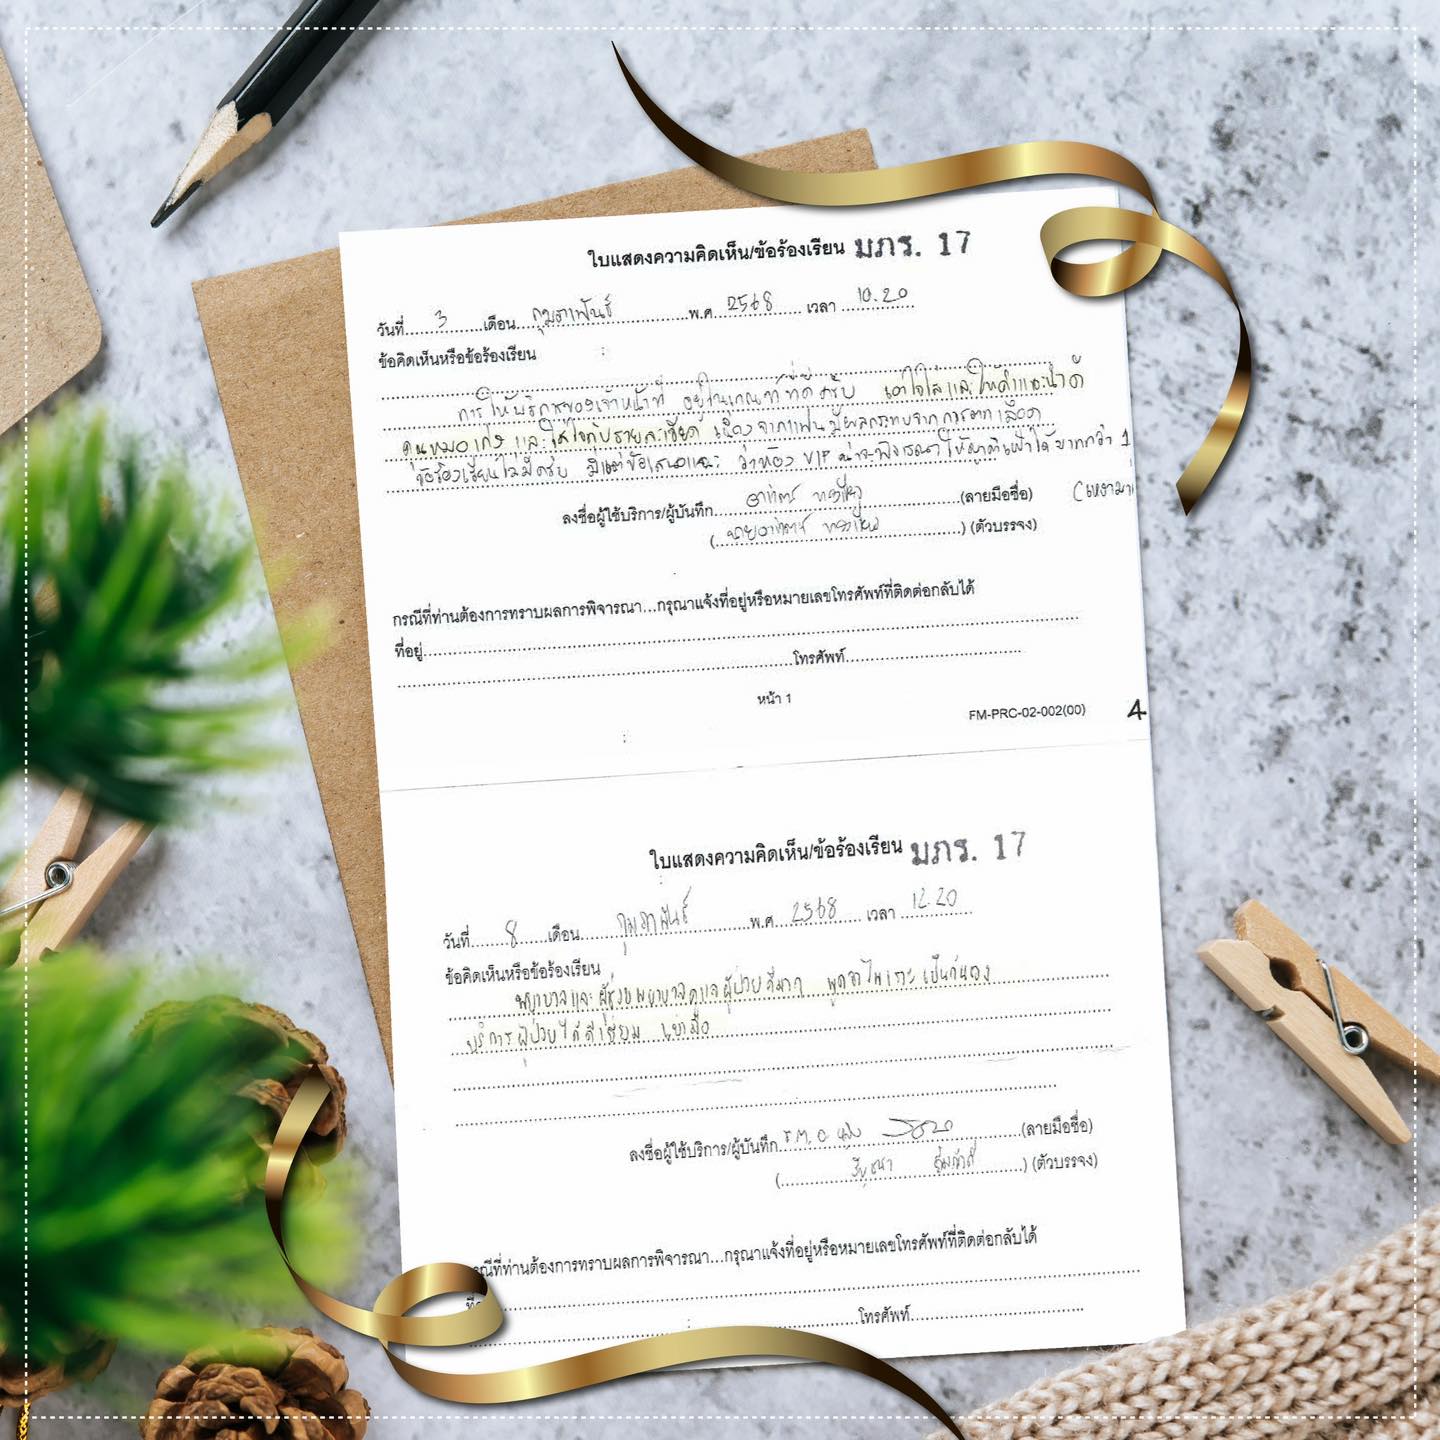 ใบแสดงความคิดเห็น/ข้อร้องเรียน มภร. 17
วันที่ 3 เดือน กุมภาพันธ์ พ.ศ. 2568 เวลา 10.20
ข้อคิดเห็นหรือข้อร้องเรียน
การให้บริการของเจ้าหน้าที่ อยู่ในเกณฑ์ที่ดีครับ เอาใจใส่และให้คำแนะนำดี
คุณหมอเก่ง และใส่ใจกับรายละเอียด เนื่องจากแฟนมีผลกระทบจากการเจาะเลือด
ข้อร้องเรียนไม่มีครับ มีแต่ข้อเสนอแนะ ว่าห้อง VIP น่าจะพิจารณาให้ญาติเฝ้าได้มากกว่า 1
ลงชื่อผู้ใช้บริการ/ผู้บันทึก (ลายมือชื่อ)
( ) (ตัวบรรจง)
กรณีที่ท่านต้องการทราบผลการพิจารณา...กรุณาแจ้งที่อยู่หรือหมายเลขโทรศัพท์ที่ติดต่อกลับได้
ที่อยู่
โทรศัพท์
หน้า 1
FM-PRC-02-002(00) 4
ใบแสดงความคิดเห็น/ข้อร้องเรียน มภร. 17
วันที่ 8 เดือน กุมภาพันธ์ พ.ศ. 2568 เวลา 12.20
ข้อคิดเห็นหรือข้อร้องเรียน
พยาบาลและผู้ช่วยพยาบาลดูแลผู้ป่วยดีมาก พูดจาไพเราะ เป็นกันเอง
บริการผู้ป่วยได้ดีเยี่ยม
ลงชื่อผู้ใช้บริการ/ผู้บันทึก (ลายมือชื่อ)
( ) (ตัวบรรจง)
กรณีที่ท่านต้องการทราบผลการพิจารณา...กรุณาแจ้งที่อยู่หรือหมายเลขโทรศัพท์ที่ติดต่อกลับได้
โทรศัพท์